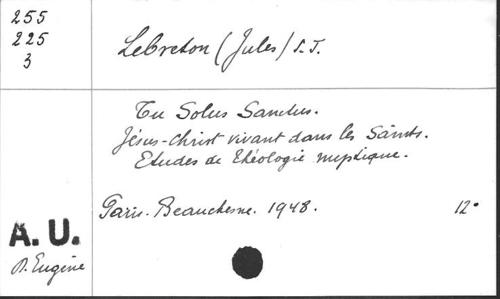 255
225
3
Lebreton (Jules) S.J.
Tu Solus Sanctus.
Jésus-Christ vivant dans les Saints.
Etudes de théologie mystique.
Paris. Beauchesne. 1948. 12°
A. U.
P. Eugène